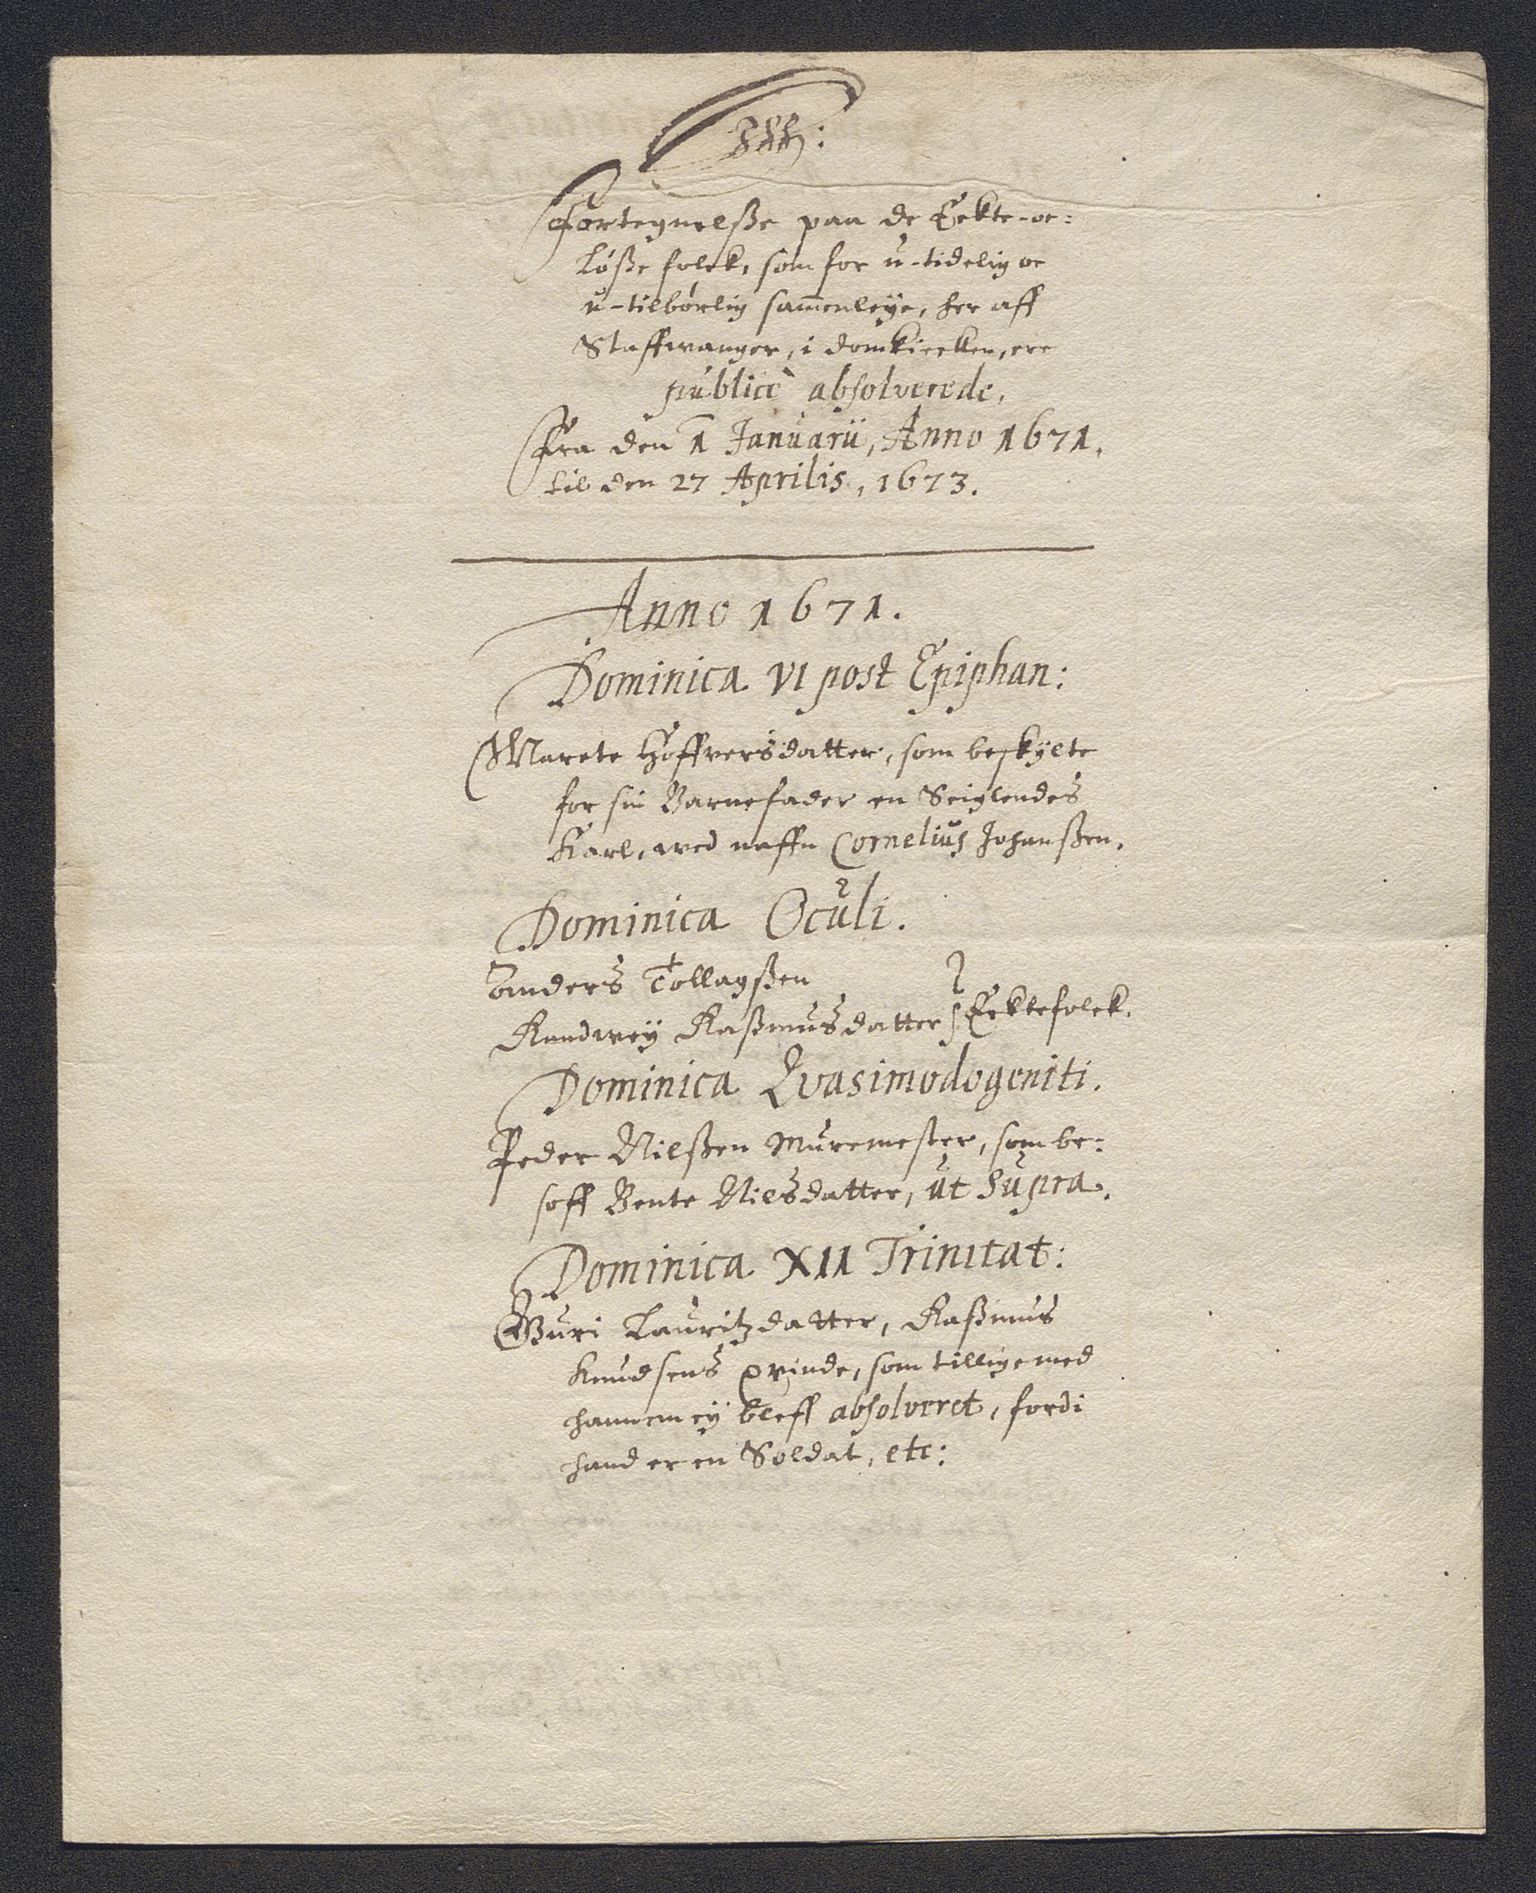 Fortegnelsse paa de Eckte- oc
Lösse folck, som for u-tidelig oc
u-tilbørlig sammenleye, her aff
Staffwanger, i domkircken, ere
publicè absolverede,
Fra den 1 Januarii, Anno 1671.
til den 27 Aprilis, 1673.
Anno 1671.
Dominica VI post Epiphan:
Marete Hoffversdatter, som beskylte
for sin Barnefader en Seiglendes
Karl, ved naffn Cornelius Johanssen.
Dominica Oculi.
Anders Tollagssen
Randvey Rassmusdatter } Ecktefolck.
Dominica Qvasimodogeniti.
Peder Nilssen Muremester, som be=
soff Bente Nielsdatter, ut supra.
Dominica XII Trinitat:
Guri Lauritzdatter, Rassmus
Knudsens qvinde, som tillige med
hannem ey bleff absolveret, fordi
hand er en Soldat, etc: